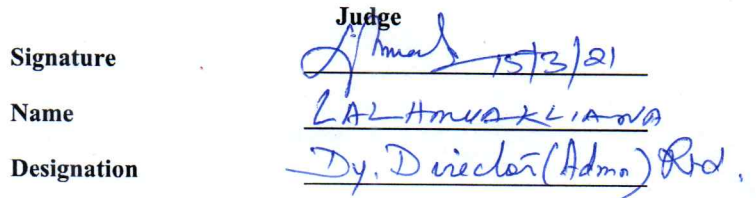 Judge
Signature 15/3/21
Name LALHMUAKLIANA
Designation Dy. Director (Admn) Rtd.